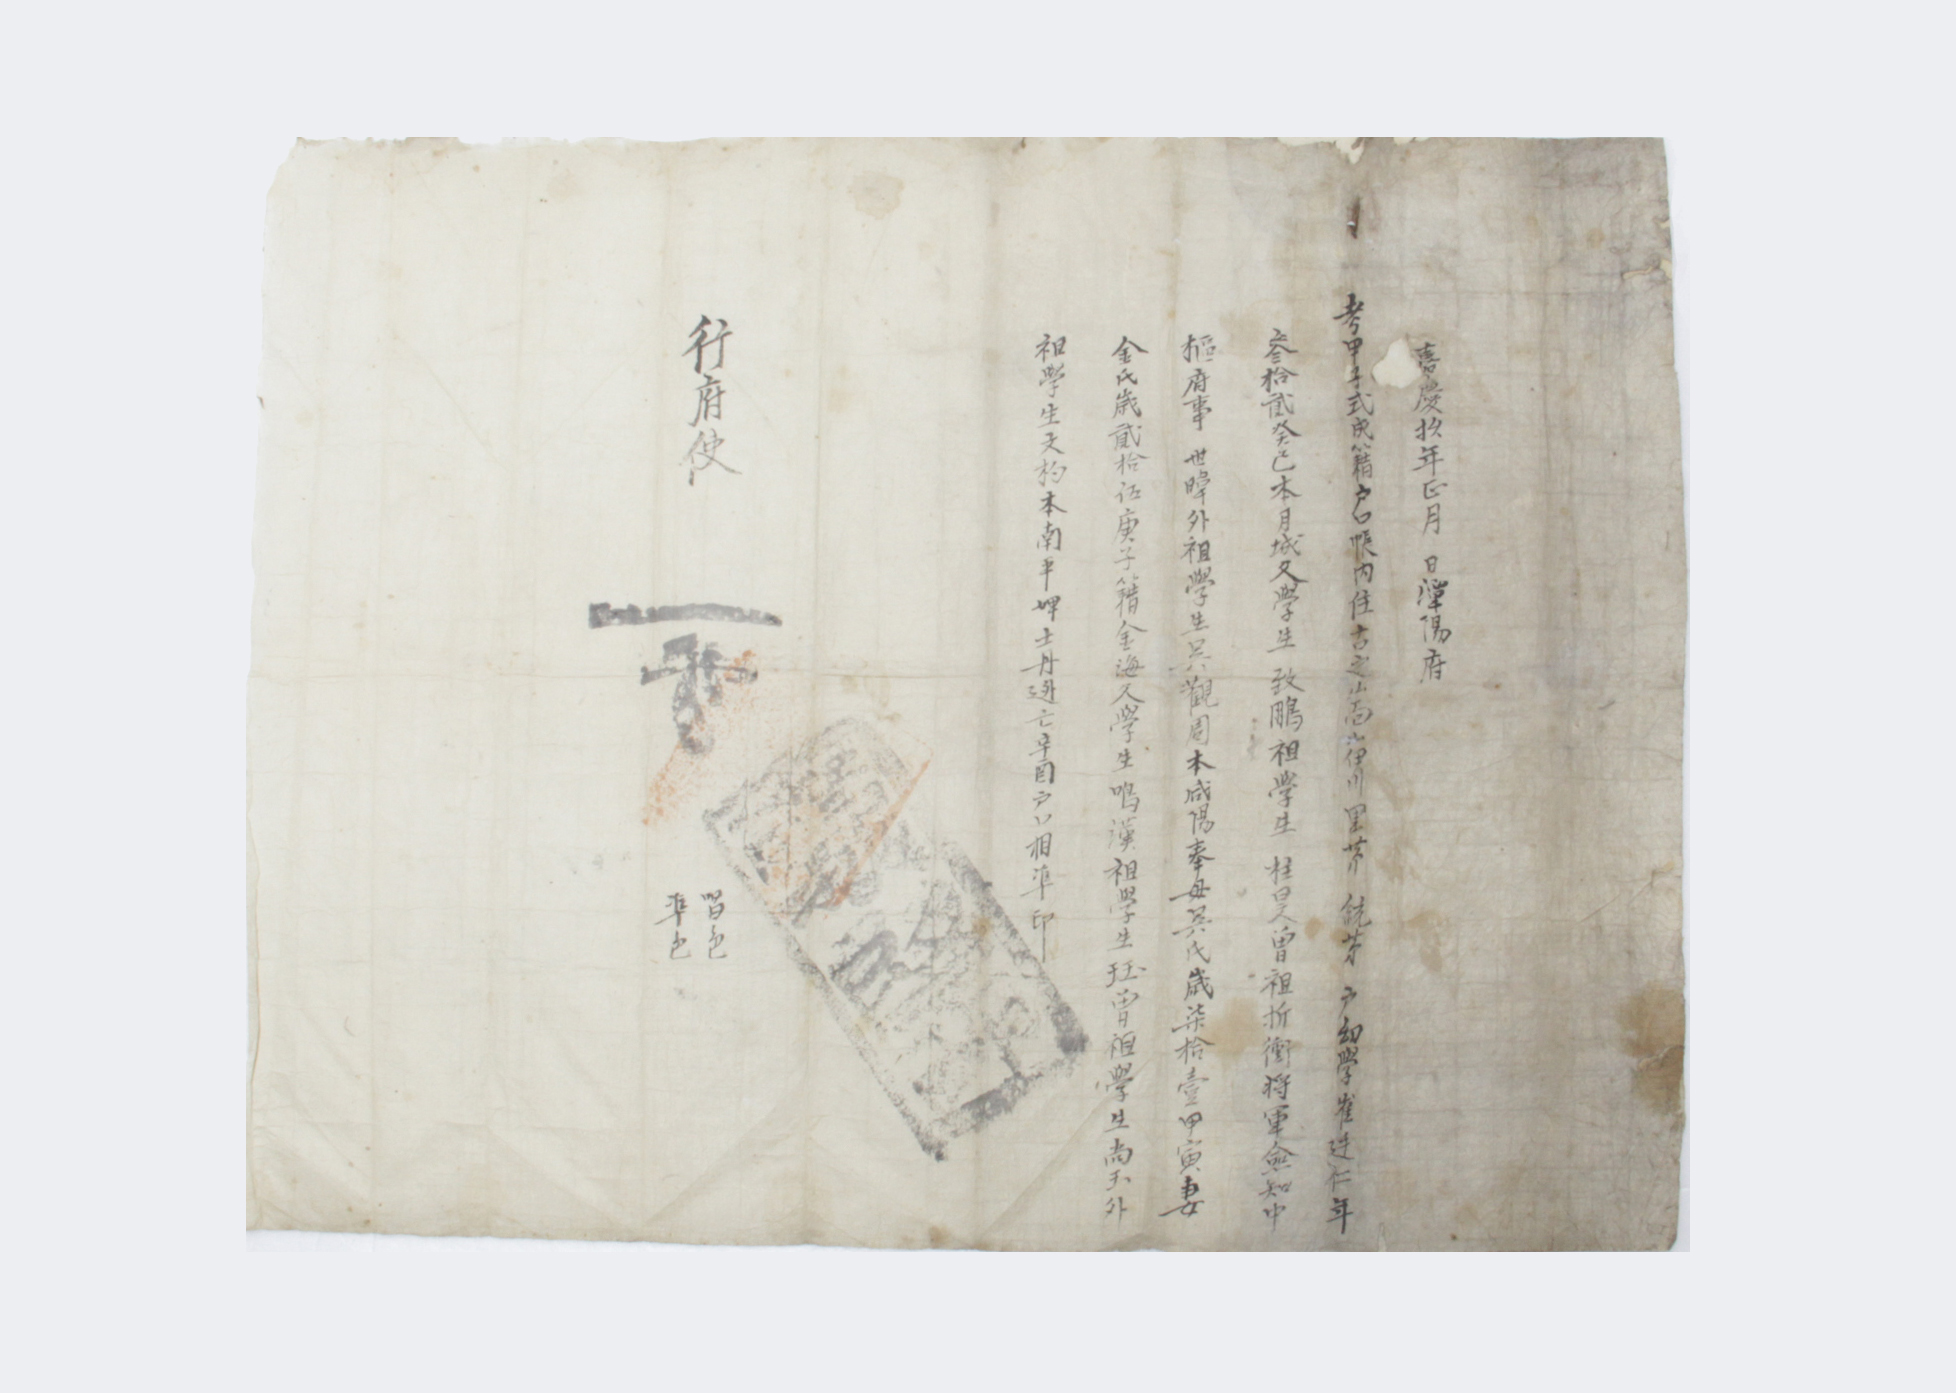 嘉慶玖年正月 日潭陽府
考甲子式成籍户口帳內住古之山面伊川里第 統第 户幼學崔廷仁年
叁拾貳癸巳本月城父學生 致鵬祖學生 柱昊曾祖折衝將軍僉知中
樞府事 世暐外祖學生吳觀周本咸陽奉母吳氏歲柒拾壹甲寅妻
金氏歲貳拾伍庚子籍金海父學生鳴漢祖學生珏曾祖學生尚玉外
祖學生文杓本南平婢士丹逃亡辛酉户口相準印
行府使
唱色
準色